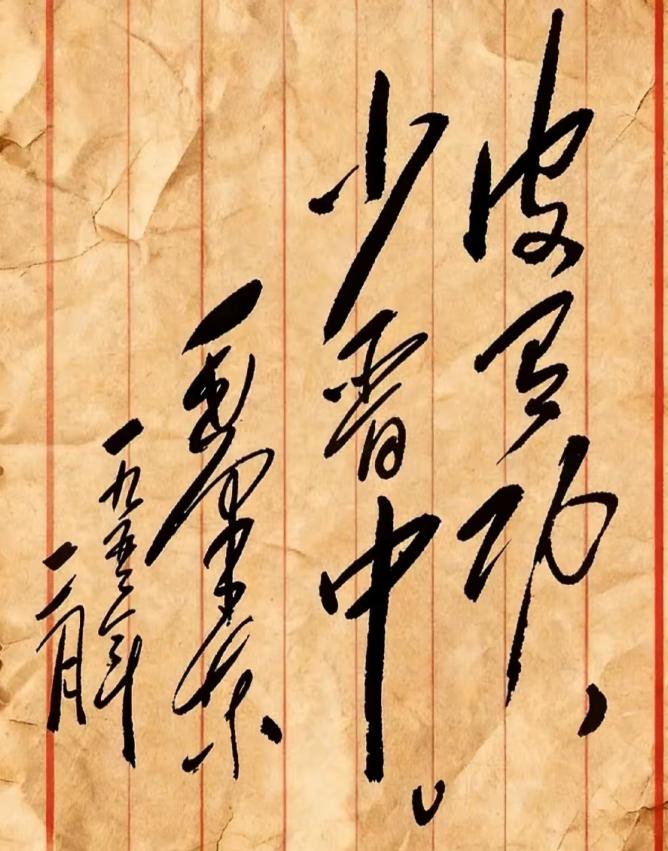 皮有功，
少晋中。
毛泽东
一九五五年
二月